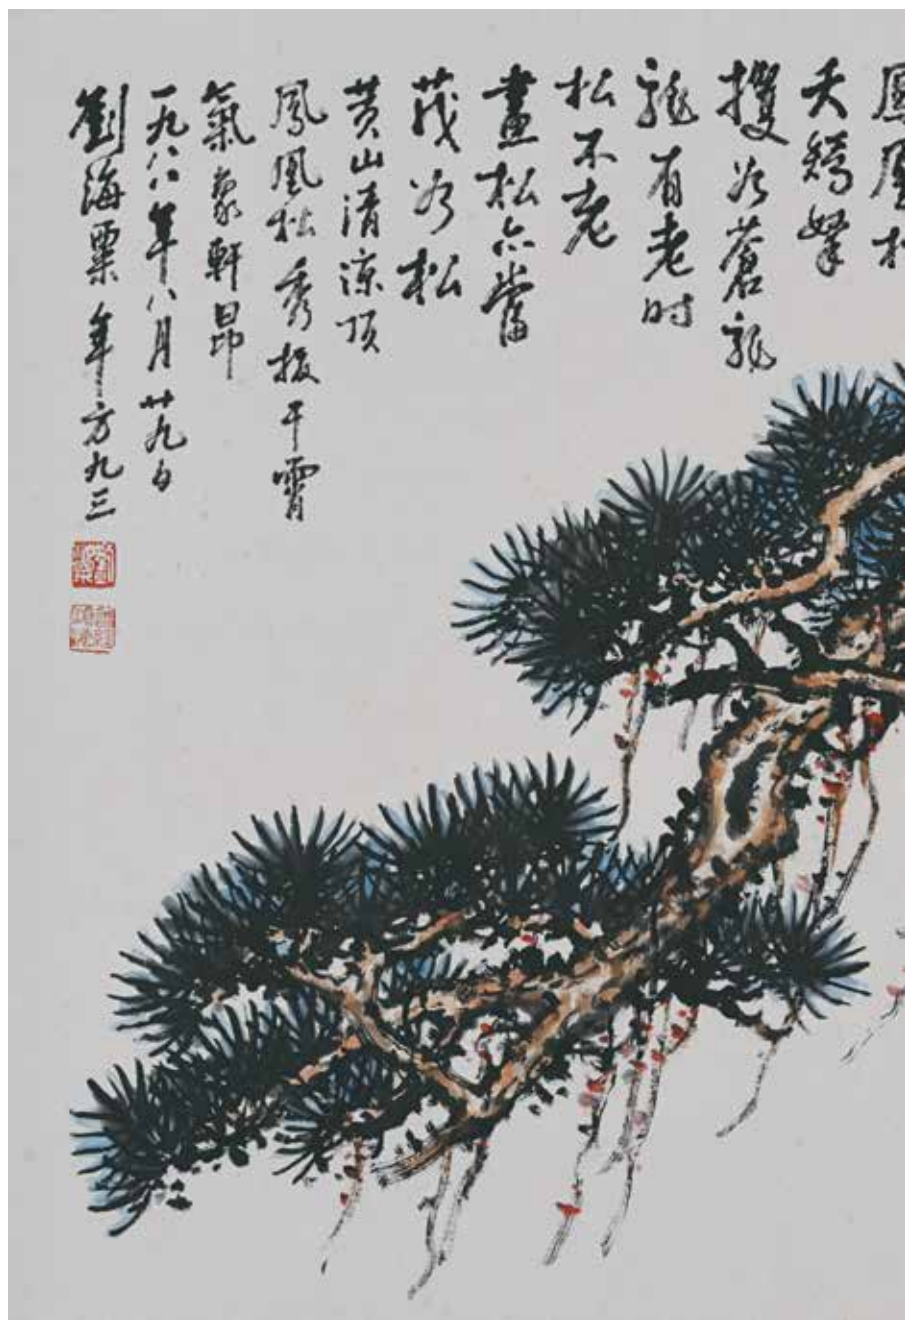 鳳凰松
夭矯拏
攫 蒼龍
龍有老时
松不老
畫松亦當
松
黄山清涼顶
鳳凰松秀拔干霄
氣象軒昂
一九八八年八月廿九日
劉海粟年方九三